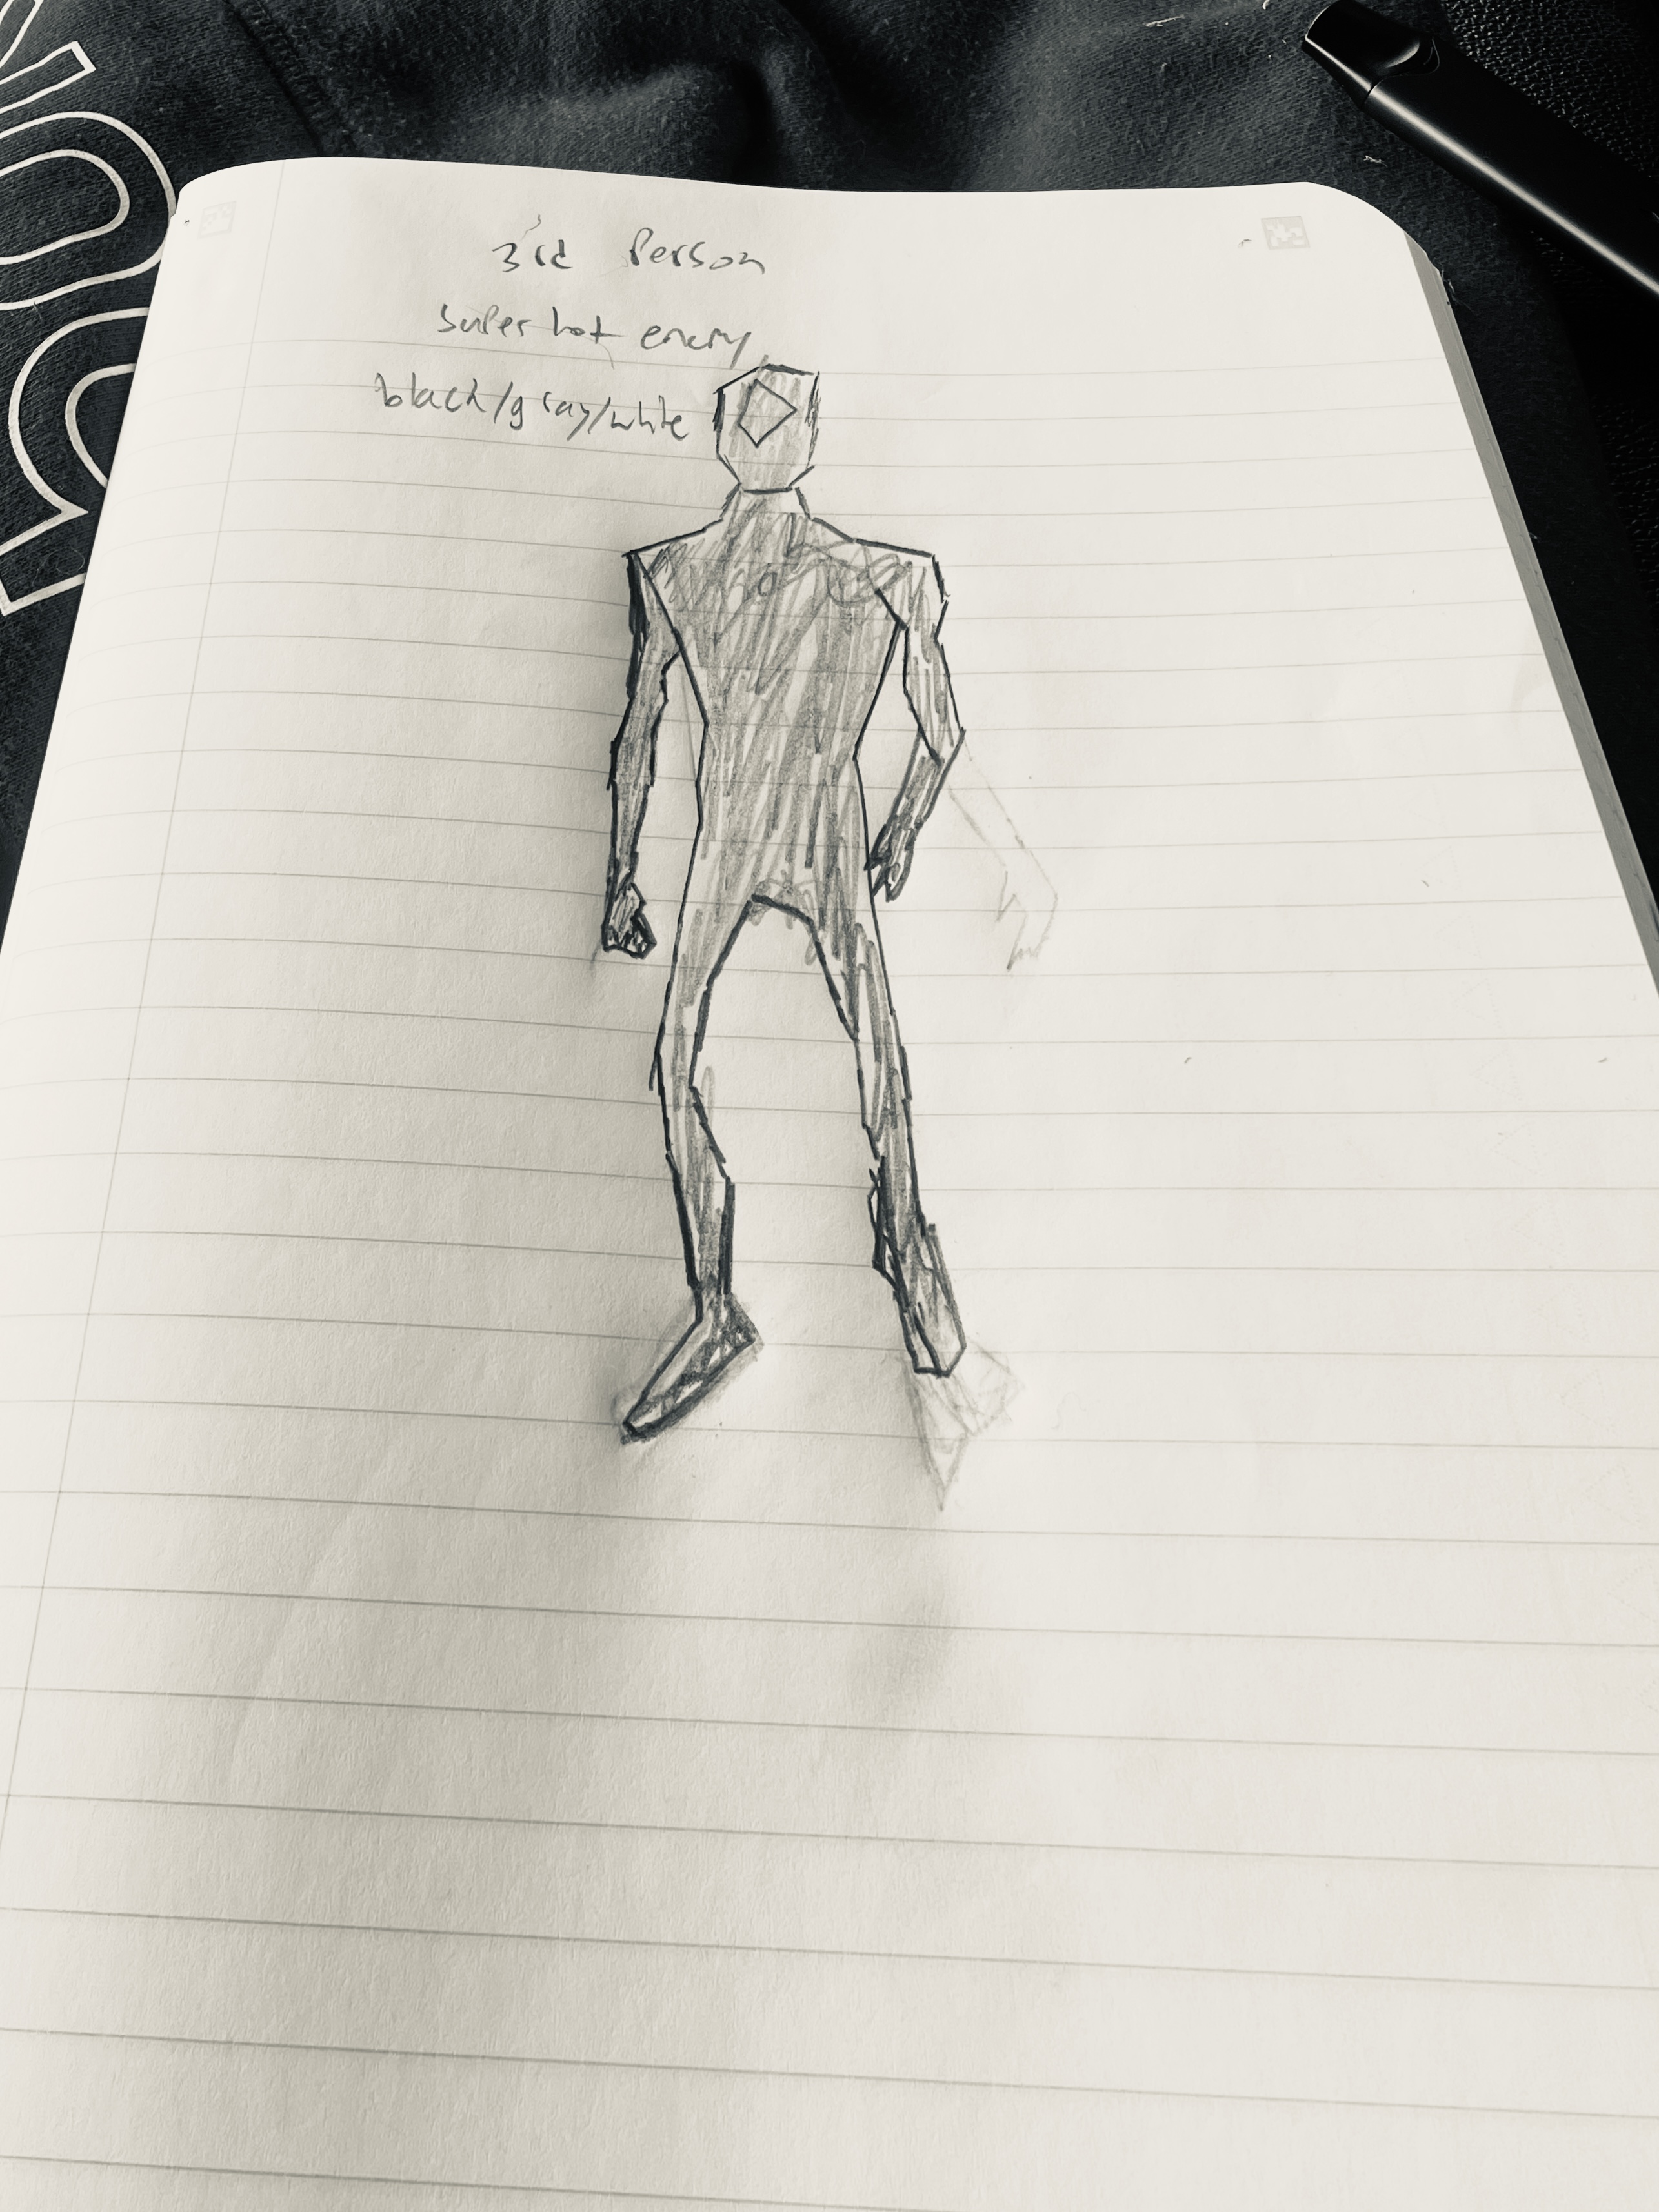 3rd Person
super hot enemy
black/gray/white